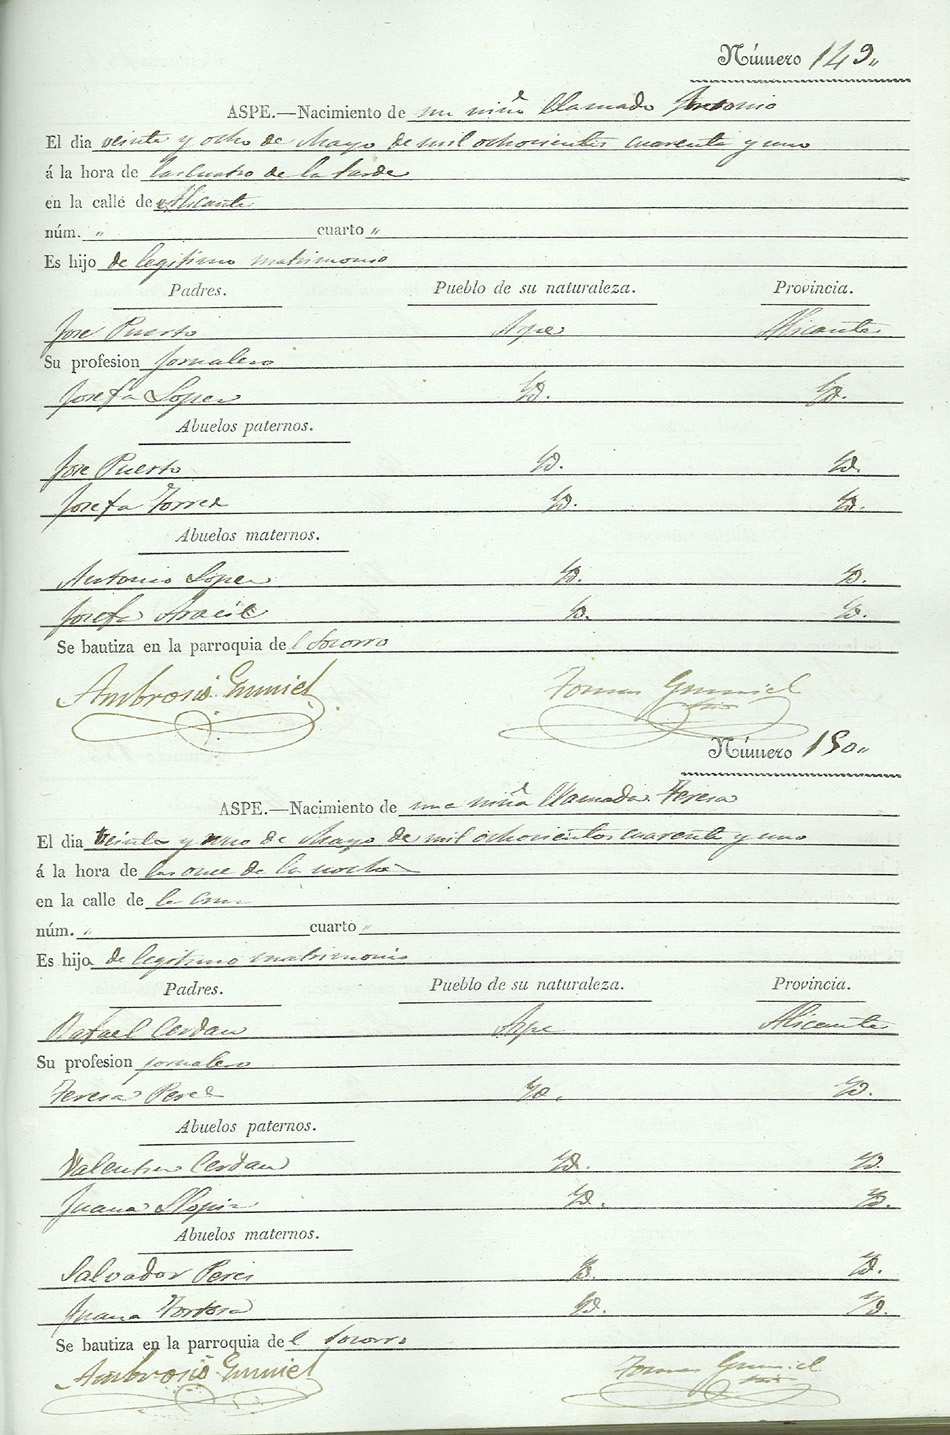 Número 149„
ASPE.—Nacimiento de un niño llamado Antonio
El dia veinte y ocho de Mayo de mil ochocientos cuarenta y uno
á la hora de las cuatro de la tarde
en la calle de Alicante
núm. „ cuarto „
Es hijo de legitimo matrimonio
Padres. Pueblo de su naturaleza. Provincia.
Jose Puerto Aspe Alicante
Su profesion Jornalero
Josefa Lopez Yd. Yd.
Abuelos paternos.
Jose Puerto Yd. Yd.
Josefa Torres Yd. Yd.
Abuelos maternos.
Antonio Lopez Yd. Yd.
Josefa Aracil Yd. Yd.
Se bautiza en la parroquia del Socorro
Ambrosio Gumiel Tomas Gumiel
Srio
Número 150„
ASPE.—Nacimiento de una niña llamada Teresa
El dia veinte y uno de Mayo de mil ochocientos cuarenta y uno
á la hora de las once de la noche
en la calle de la
núm. „ cuarto „
Es hija de legitimo matrimonio
Padres. Pueblo de su naturaleza. Provincia.
Rafael Cerdan Aspe Alicante
Su profesion jornalero
Teresa Peres Yd. Yd.
Abuelos paternos.
Valentin Cerdan Yd. Yd.
Juana Yd. Yd.
Abuelos maternos.
Salvador Peres Yd. Yd.
Juana Tortosa Yd. Yd.
Se bautiza en la parroquia del Socorro
Ambrosio Gumiel Tomas Gumiel
Srio